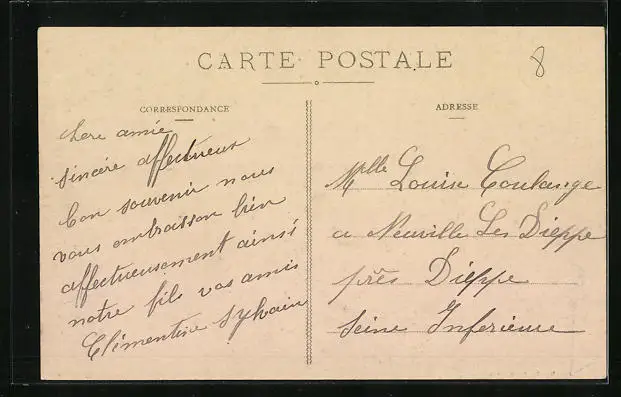 CARTE POSTALE
8
CORRESPONDANCE
ADRESSE
chere amie
sincère affectueux
bon souvenir nous
vous embrasson bien
affectueusement ainsi
notre fils vos amis
Clémentine Sylvain
Mlle Louise Coulange
a Neuville Les Dieppe
près Dieppe
Seine Inferieure